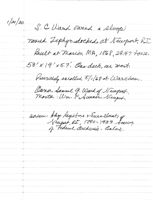 1/21/20
S. C. Ward owned a sloop
named Zephyr docked at Newport, R.I.
Built at Marion, MA, 1868, 29.47 tons.
53' x 19' x 5.7'. One deck, one mast.
Previously enrolled 5/1/68 at Wareham.
Owner Samuel C. Ward of Newport.
Master: Wm.
source: Ship Registers & Enrollments of
Newport, RI, 1790-1939. Survey
of Federal Archives.